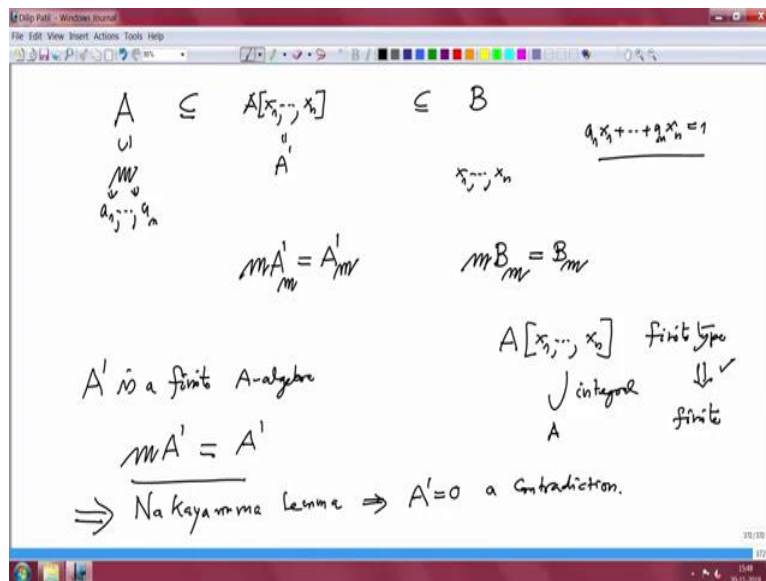 Dilip Patil - Windows Journal
File Edit View Insert Actions Tools Help
A ⊆ A[x₁,..., xₙ] ⊆ B
a₁x₁+...+aₙxₙ=1
∪| "
m A'
x₁,..., xₙ
a₁,..., aₙ
mA'ₘ = A'ₘ mBₘ = Bₘ
A[x₁,..., xₙ] finite type
∪ integral ⇓ ✓
A finite
A' is a finite A-algebra
mA' = A'
⇒ Nakayamma Lemma ⇒ A'=0 a contradiction.
372/372
372
15:48